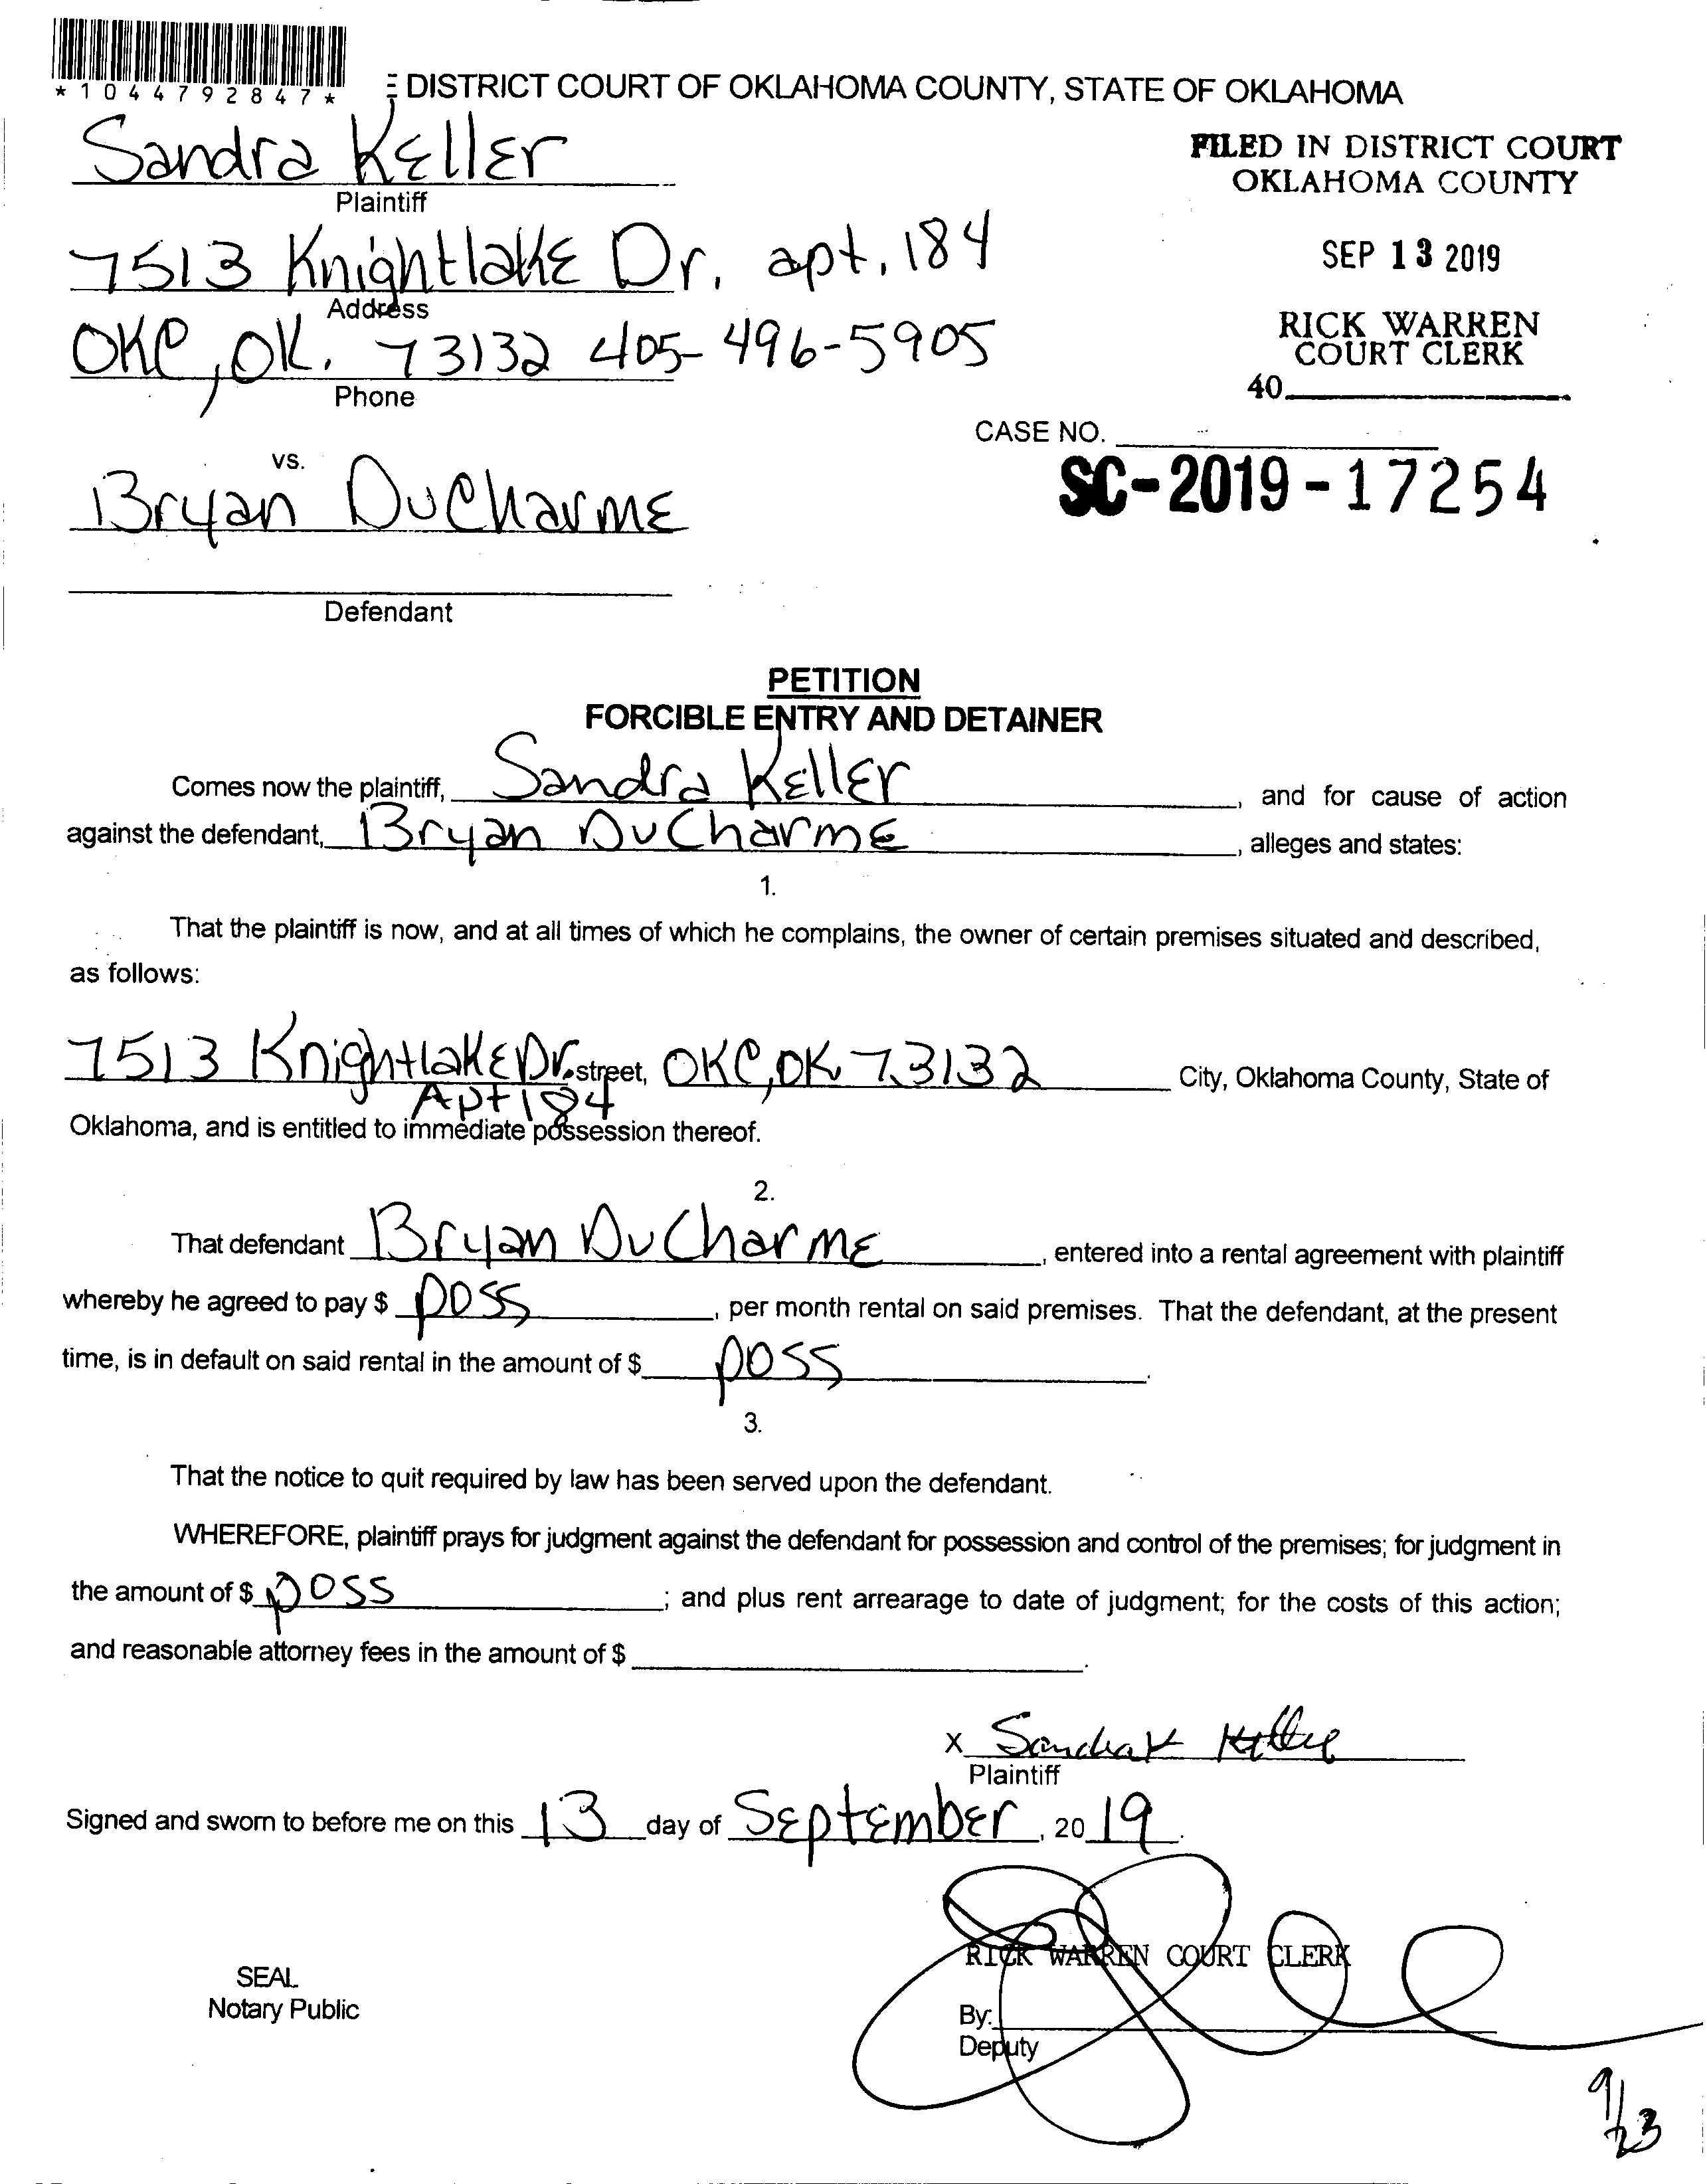 *1044792847*
DISTRICT COURT OF OKLAHOMA COUNTY, STATE OF OKLAHOMA
Sandra Keller
Plaintiff
FILED IN DISTRICT COURT
OKLAHOMA COUNTY
7513 Knightlake Dr. apt. 184
Address
SEP 13 2019
OKC, OK. 73132 405-496-5905
Phone
RICK WARREN
COURT CLERK
40
CASE NO.
SC-2019-17254
vs.
Bryan DuCharme
Defendant
PETITION
FORCIBLE ENTRY AND DETAINER
Comes now the plaintiff, Sandra Keller, and for cause of action
against the defendant, Bryan DuCharme, alleges and states:
1.
That the plaintiff is now, and at all times of which he complains, the owner of certain premises situated and described,
as follows:
7513 Knightlake Dr. street, OKC, OK 73132 City, Oklahoma County, State of
Apt 184
Oklahoma, and is entitled to immediate possession thereof.
2.
That defendant Bryan DuCharme, entered into a rental agreement with plaintiff
whereby he agreed to pay $ poss, per month rental on said premises. That the defendant, at the present
time, is in default on said rental in the amount of $ poss.
3.
That the notice to quit required by law has been served upon the defendant.
WHEREFORE, plaintiff prays for judgment against the defendant for possession and control of the premises; for judgment in
the amount of $ poss; and plus rent arrearage to date of judgment; for the costs of this action;
and reasonable attorney fees in the amount of $ .
X Sandra K Keller
Plaintiff
Signed and sworn to before me on this 13 day of September, 2019.
RICK WARREN COURT CLERK
SEAL
Notary Public
By:
Deputy
9/23